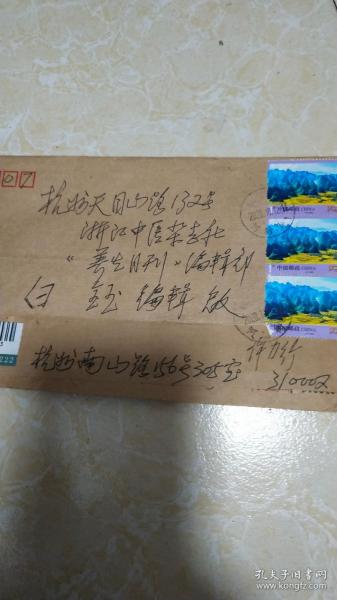 07
杭州天目山路132号
浙江中医杂志社
《养生月刊》编辑部
金玉 编辑 收
杭州南山路156号305室
310002
中国邮政 CHINA
中国邮政 CHINA
中国邮政 CHINA
222
孔夫子旧书网